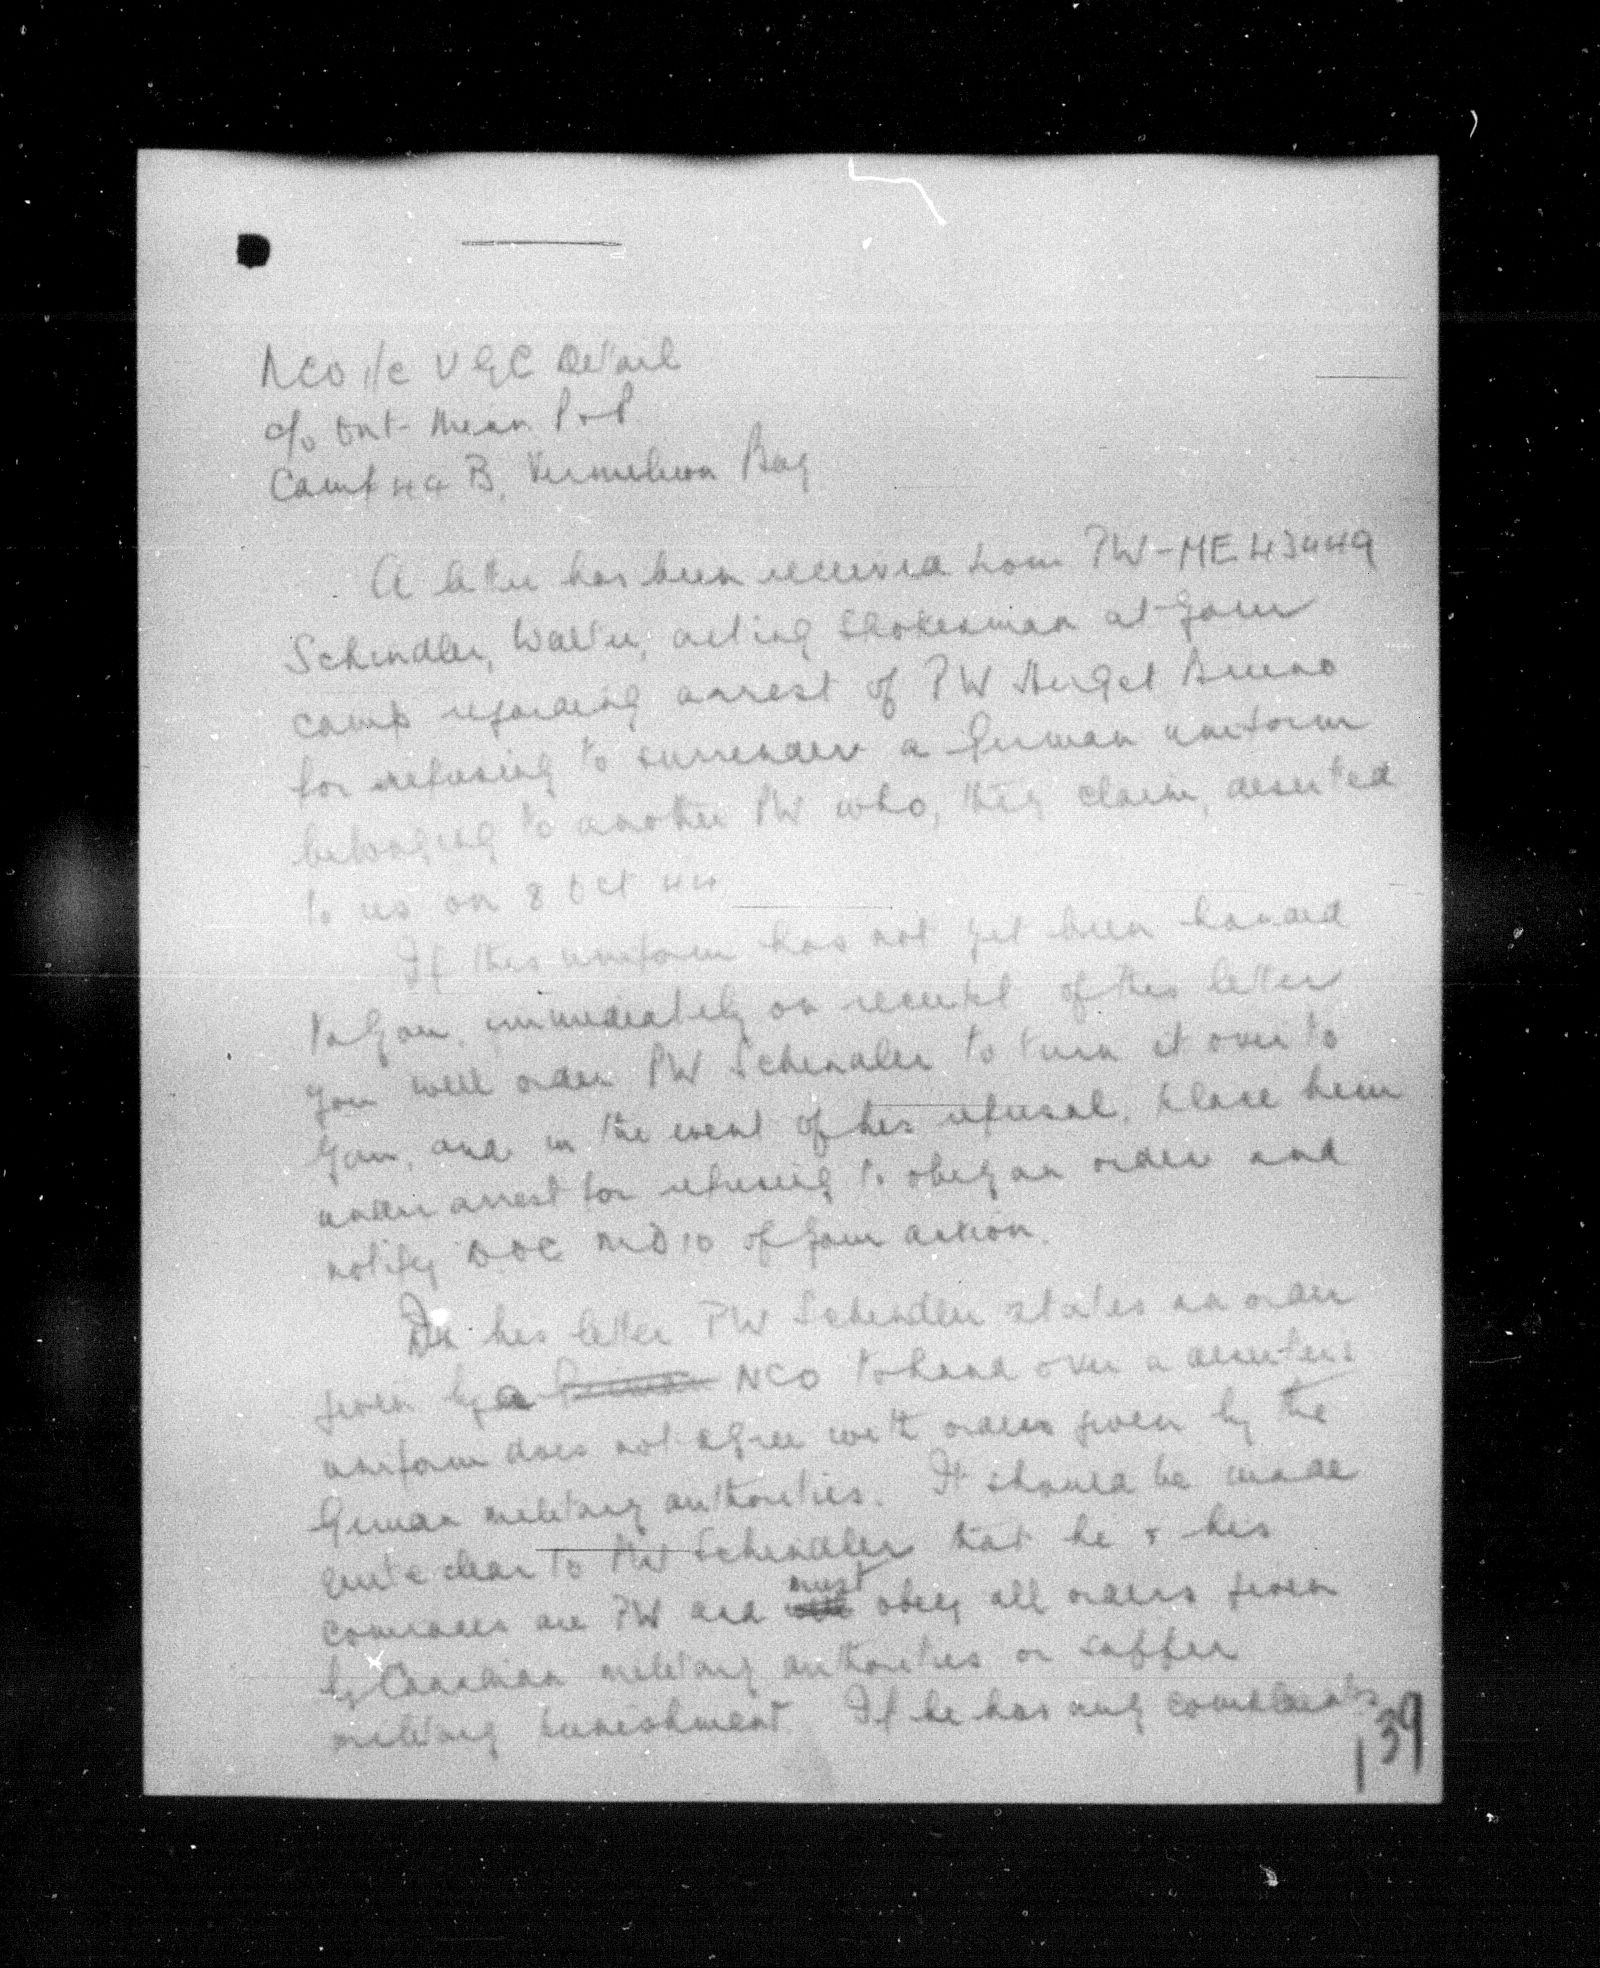 NCO i/c VGC Detail
c/o Ont-Minn P & P
Camp 44 B, Vermilion Bay
A letter has been received from PW-ME 43449
Schindler, Walter, acting spokesman at your
camp regarding arrest of PW Herget Bruno
for refusing to surrender a German uniform
belonging to another PW who, they claim, deserted
to us on 8 Oct 44
If this uniform has not yet been handed
to you, immediately on receipt of this letter
you will order PW Schindler to turn it over to
you, and in the event of his refusal, place him
under arrest for refusing to obey an order and
notify DOC MD 10 of your action.
In his letter PW Schindler states an order
given by a NCO to hand over a deserters
uniform does not agree with orders given by the
German military authorities. It should be made
quite clear to PW Schindler that he & his
comrades are PW and must obey all orders given
by Canadian military authorities or suffer
military punishment. If he has any complaints
139